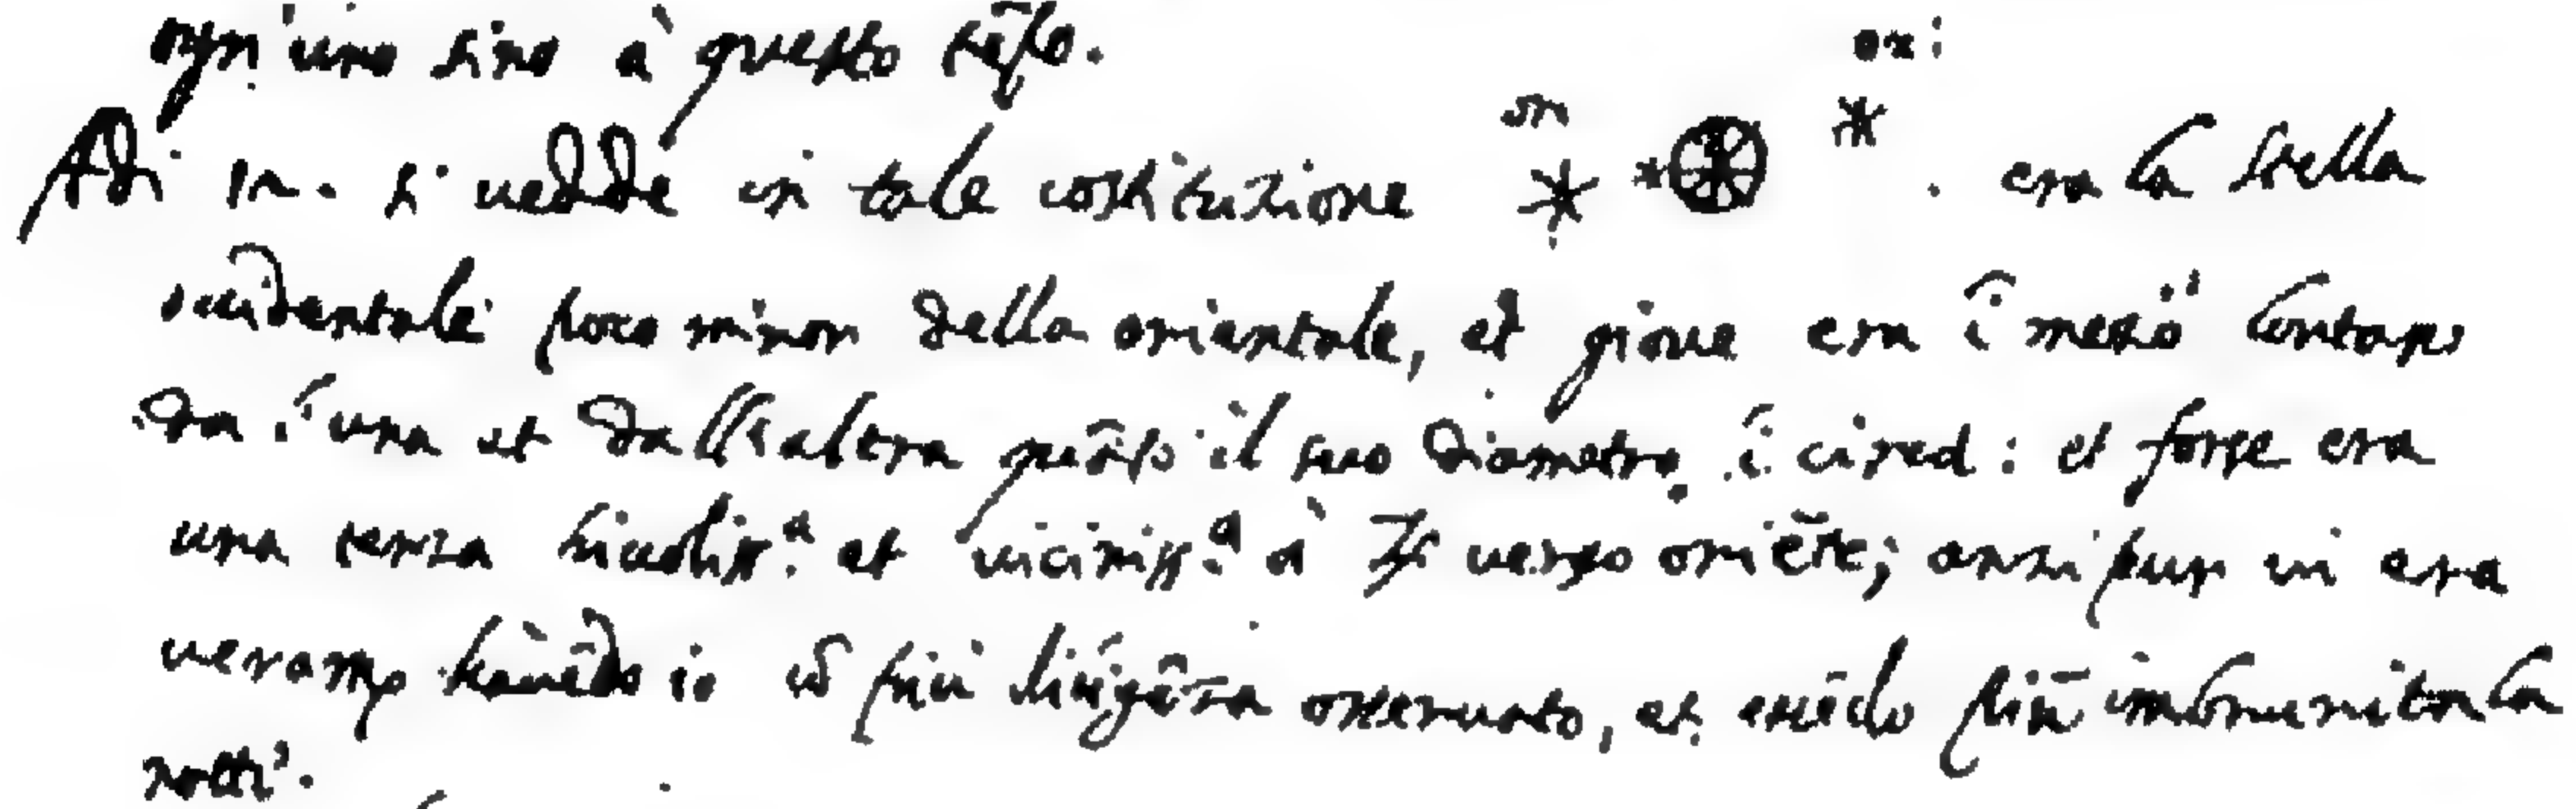 ogn'uno sino à questo tẽpo.
Adi 12. si uedde in tale costituzione or * *⊕ * oc: . era la stella
occidentale poco minor della orientale, et gioue era ĩ mezo lontano
da l'una et dall'altra quãto il suo diametro ĩ circa: et forse era
una terza piccoliss.ª et uiciniss.ª à ♃ uerso oriẽte; anzi pur ui era
ueramẽ hauẽdo io cõ più diligẽza osseruato, et essẽdo più imbrunita la
notte.